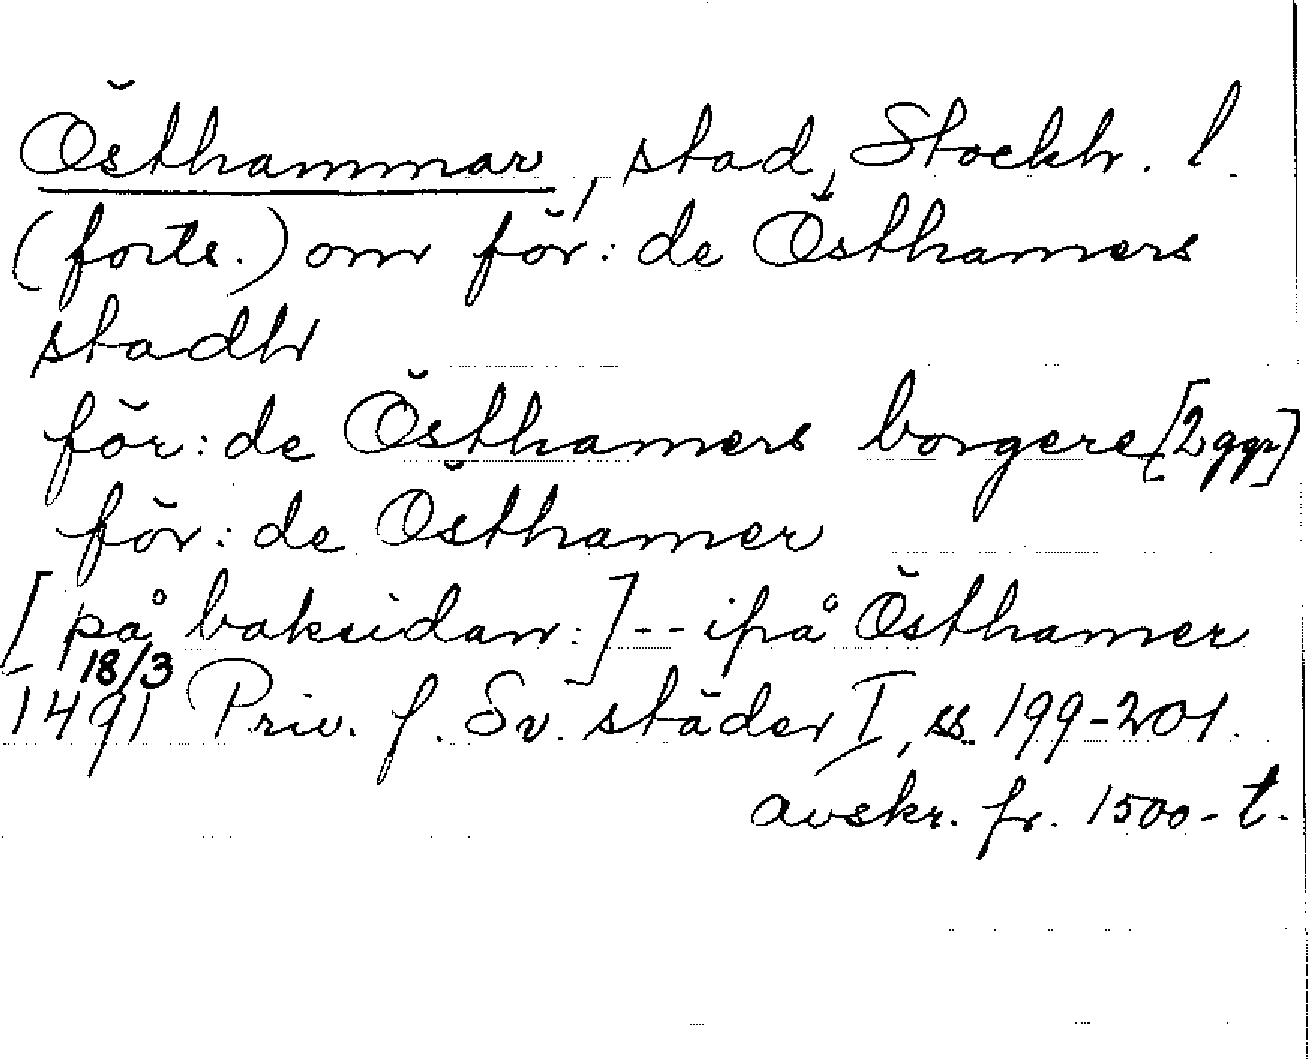 Östhammar, stad, Stockh. l.
(forts.) om för: de Östhamers
stadh
för: de Östhamers borgere [2 ggr]
för: de Östhamer
[på baksidan:] -- ifrå Östhamer
18/3
1491 Priv. f. Sv. städer I, ss. 199-201.
avskr. fr. 1500-t.